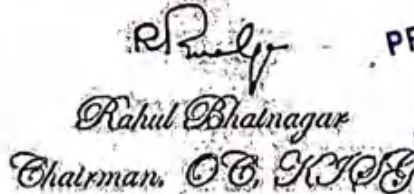 PE
Rahul Bhatnagar
Chairman, OC, KISG